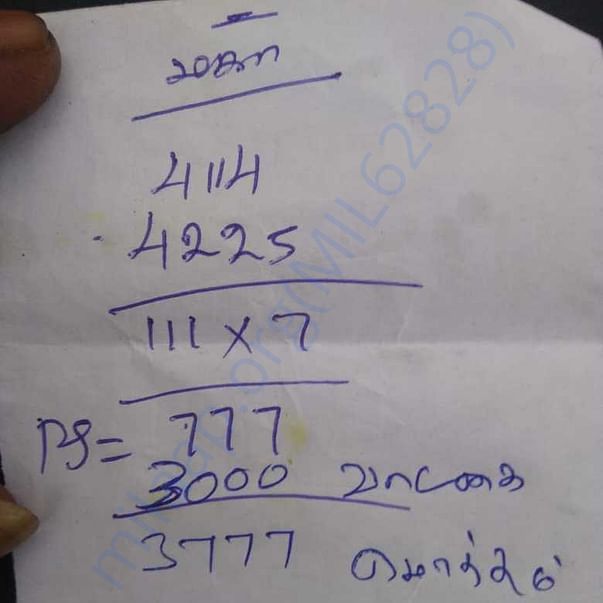 மகா
4114
4225
111 × 7
RS = 777
3000 வாடகை
3777 மொத்தம்
milaap.org(MIL62828)